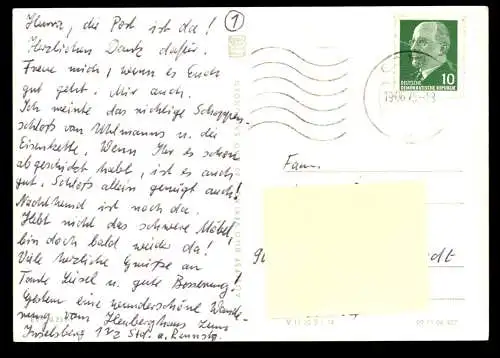 Hurra, die Post ist da! 1
Herzlichen Dank dafür.
Freue mich, wenn es Euch
gut geht. Mir auch.
Ich meinte das richtige Schuppen-
schloß von Uhlmanns u. die
Eisenkette. Wenn Ihr es schon
abgeschickt habt, ist es auch
gut. Schloß allein genügt auch!
Nachthemd ist noch da.
Hebt nicht das schwere Möbel,
bin doch bald wieder da!
Viele herzliche Grüße an
Tante Liesel u. gute Besserung!
Gestern eine wunderschöne Wande-
rung vom Heuberghaus zum
Inselsberg 1 1/2 Std. a. Rennstg.
DEUTSCHE
DEMOKRATISCHE REPUBLIK
10
Fam.
dt